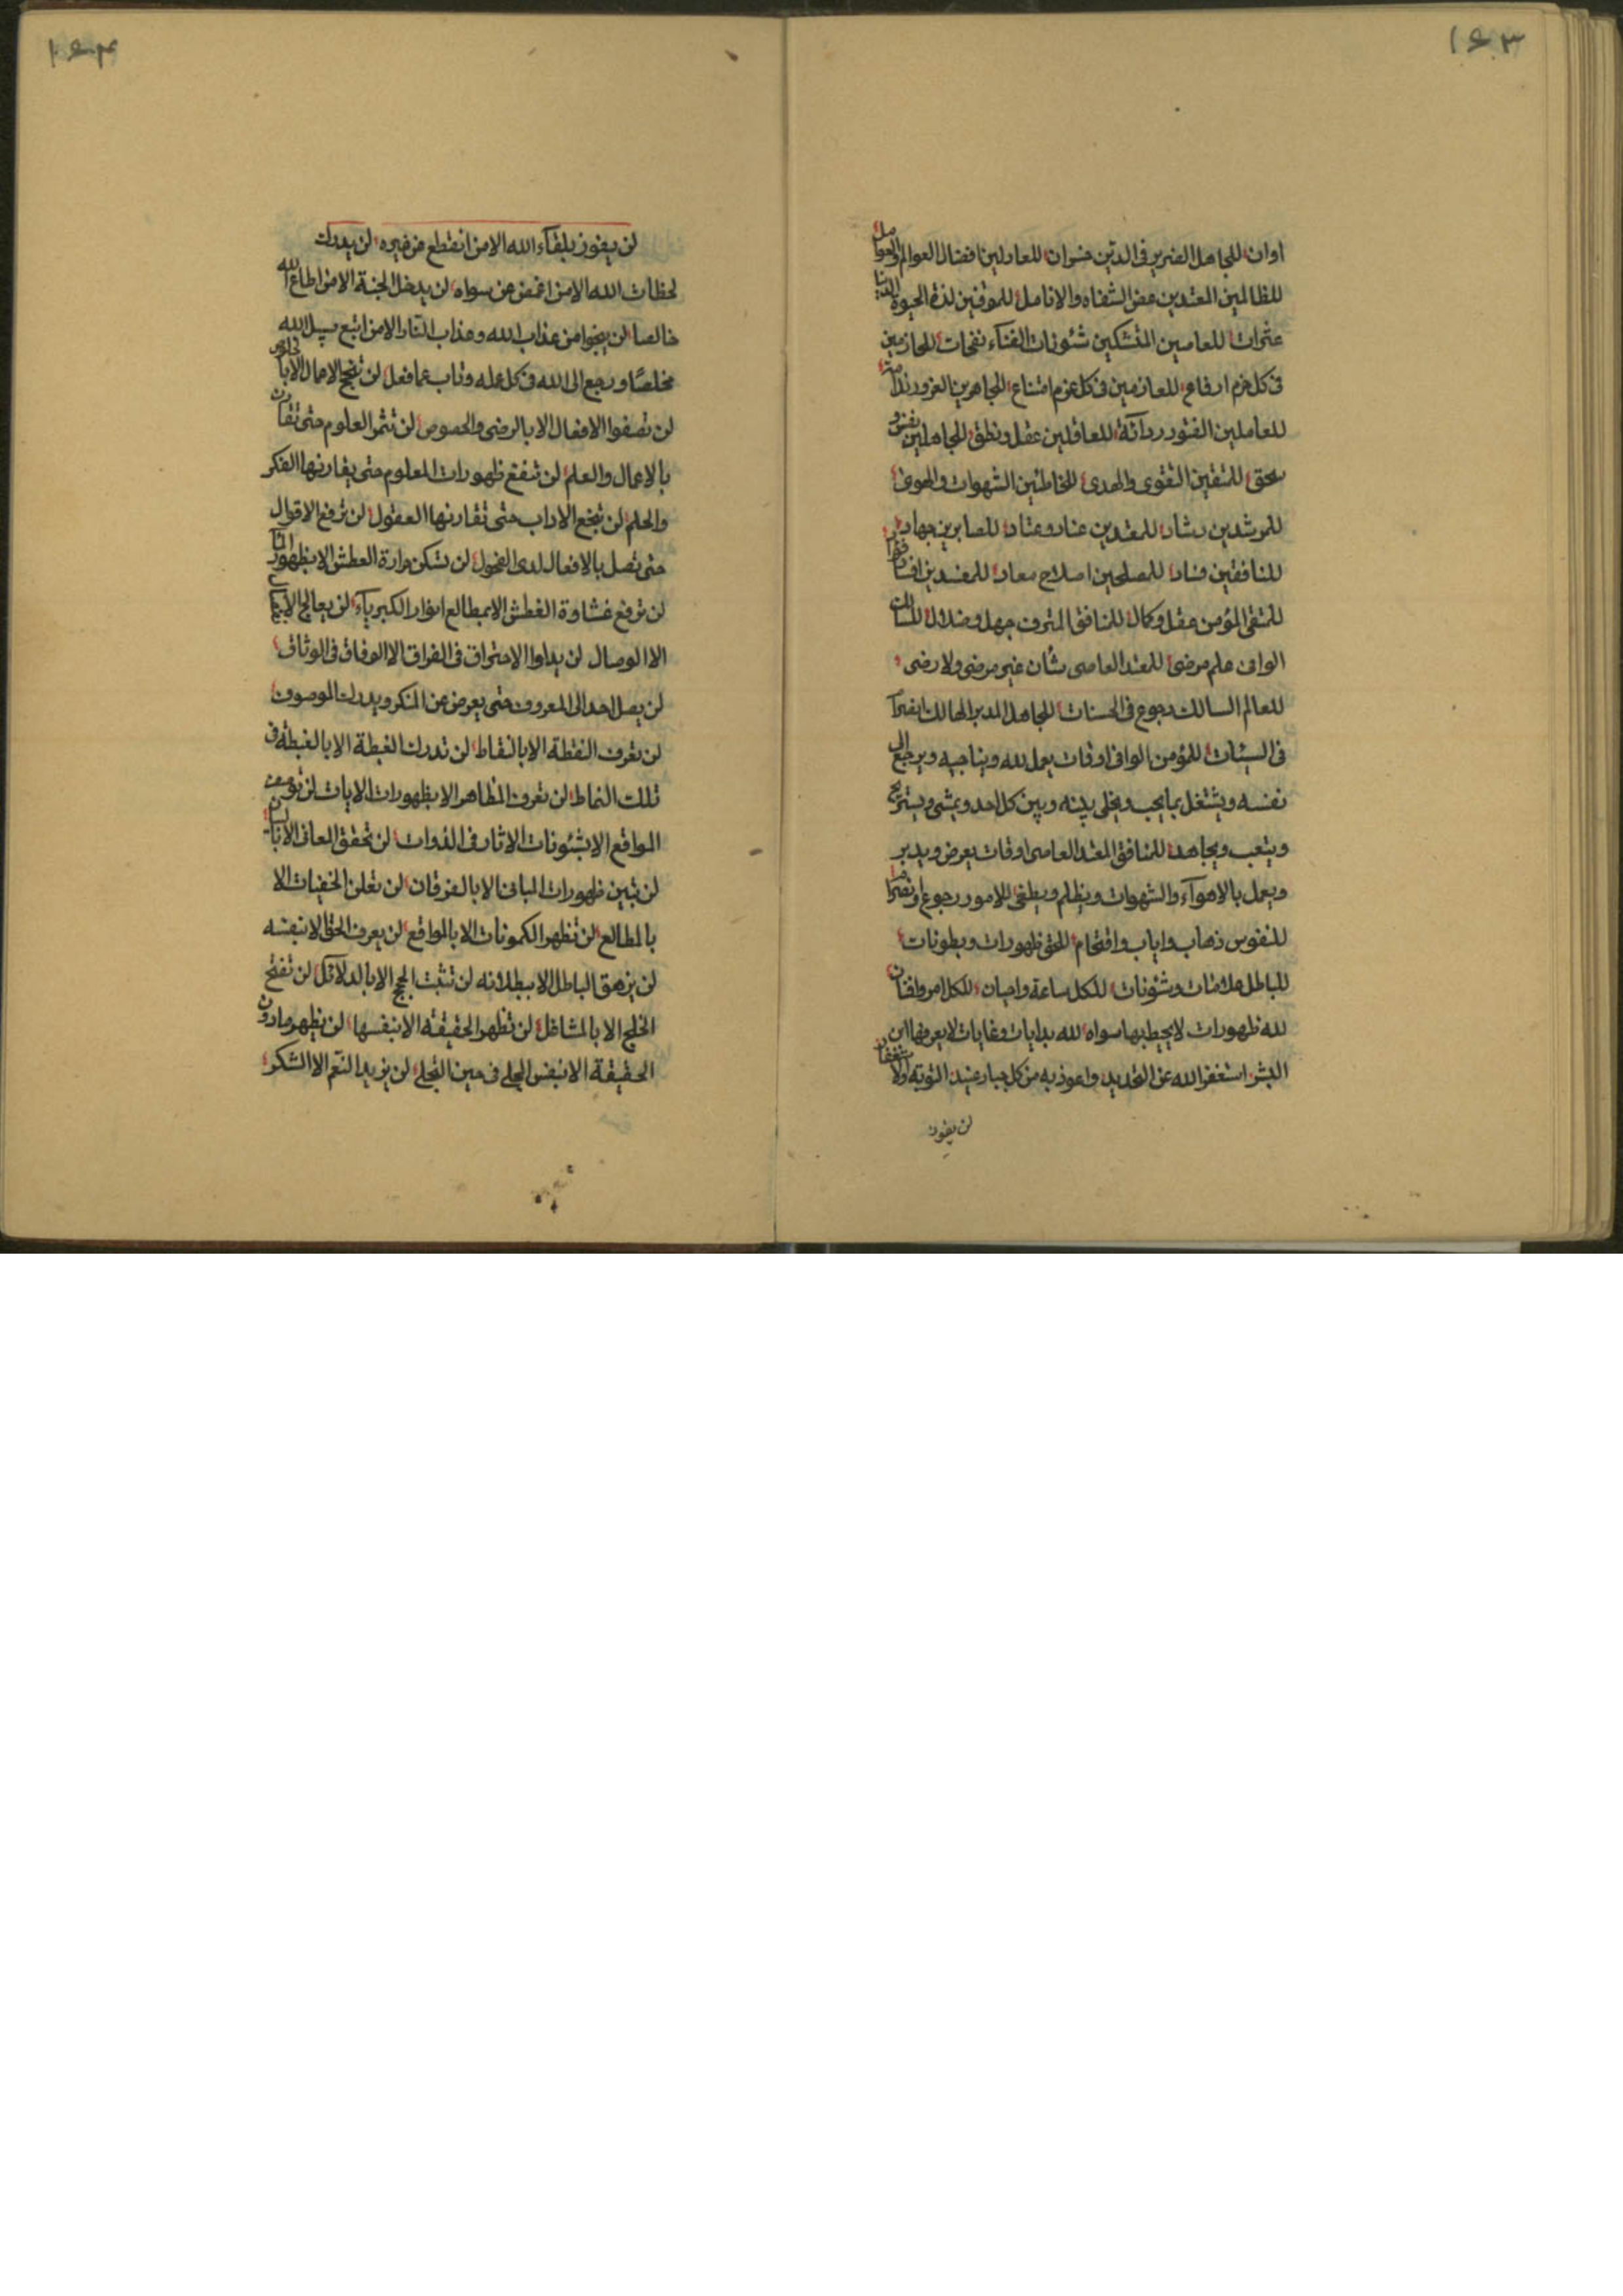 ١٤٣
اوان للجاهل الضرير فى الدين خسران للعادلين افضال العوالم والعوامل
للظالمين المعتدين عض الشفاه والانامل للموقنين لذة الحيوة الدنيا
عثرات للعاصين المتشكين شئونات الفناء نفحات للحازمين
فى كل حزم ارفاع للعازمين فى كل عزم امتناع للجاهرين الغرور ندامة
للعاملين الفتور ردآئة للعاقلين عقل ونطق للجاهلين
سحق للمتقين التقوى والهدى للخاطئين الشهوات والهوى
للمرشدين رشاد للمعتدين عناد وعتاد للصابرين جهاد
للنافقين فساد للمصلحين اصلاح معاد للمفسدين
للمتقى المؤمن عقل وكمال للنافق المترف جهل وضلال للسالك
الوافى علم مرضى للمعتد العاصى شأن غير مرضى ولا رضى
للعالم السالك رجوع فى الحسنات للجاهل المدبر الهالك
فى السيئات للمؤمن الوافى اوقات يعمل لله ويناجيه ويرجع الى
نفسه ويشتغل بما يحب ويخلى بينه وبين كل احد ويمشى ويستريح
ويتعب ويجاهد للمنافق المعتد العاصى اوقات يعرض ويدبر
ويعمل بالاهوآء والشهوات ويظلم ويطغى للامور رجوع
للنفوس ذهاب واياب واقتحام للحق ظهورات وبطونات
للباطل علامات وشئونات للكل ساعة واحيان للكل امر
لله ظهورات لا يحيط بها سواه لله بدايات وغايات لا يعرفها ابن
البشر استغفر الله عن التحديد واعوذ به من كل جبار عنيد التوبة
لن يفوز
١٤٤
لن يفوز بلقآء الله الا من انقطع عن غيره لن يدرك
لحظات الله الا من اغمض عن سواه لن يدخل الجنة الا من اطاع الله
خالصا لن ينجوا من عذاب الله وعذاب النار الا من اتبع سبيل الله
مخلصًا ورجع الى الله فى كل عمله وتاب عما فعل لن تنجح الاعمال الا بالخلوص
لن تصفوا الافعال الا بالرضى والخصوص لن تثمر العلوم حتى تقارن
بالاعمال والعلم لن تنفع ظهورات المعلوم حتى يقارنها الفكر
والحلم لن تنجع الاداب حتى تقارنها العقول لن ترفع الاقوال
حتى تصل بالافعال لدى الفحول لن تسكن حرارة العطش الا بظهور المآء
لن ترفع غشاوة الغطش الا بمطالع انوار الكبريآء لن يعالج
الا الوصال لن يداوا الاحتراق فى الفراق الا الوفاق فى الوثاق
لن يصل احد الى المعروف حتى يعرض عن المنكر ويدرك الموصوف
لن تعرف النقطة الا بالنقاط لن تدرك الغبطة الا بالغبطة فى
تلك النماط لن تعرف المظاهر الا بظهورات الايات لن توصف
المواقع الا بشئونات الاثار فى الذوات لن تحقق المعانى الا
لن تبين ظهورات المبانى الا بالفرقان لن تعلن الخفيات الا
بالمطالع لن تظهر الكمونات الا بالمواقع لن يعرف الحق الا بنفسه
لن يزهق الباطل الا ببطلانه لن تثبت الحجج الا بالدلائل لن تفتح
الخلج الا بالمشاغل لن تظهر الحقيقة الا بنفسها لن يظهر مادون
الحقيقة الا بنفس المجلى فى حين التجلى لن يزيد النعم الا الشكر